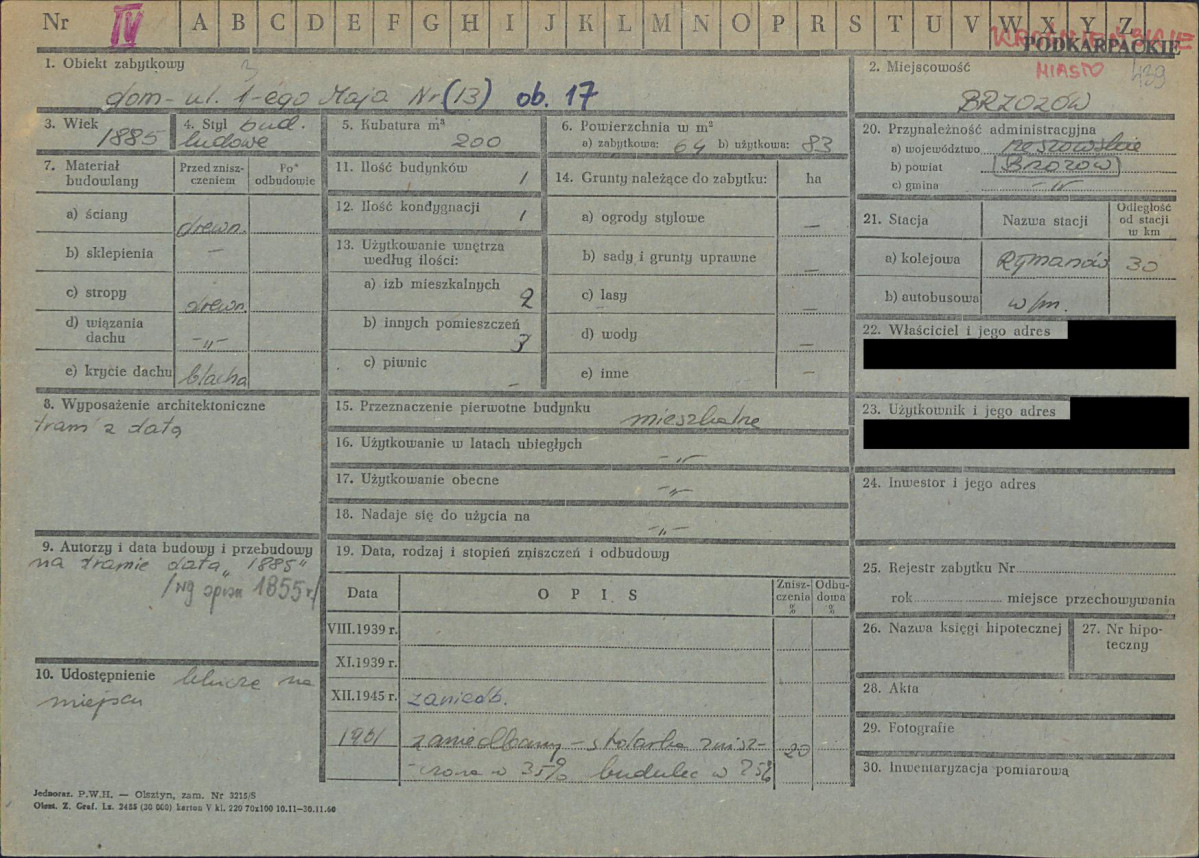 Nr IV A B C D E F G H I J K L M N O P R S T U V W X Y Z
KROŚNIEŃSKIE
PODKARPACKIE
MIASTO 439
1. Obiekt zabytkowy
dom - ul. 1-ego Maja Nr (13) ob. 17
3
2. Miejscowość
BRZOZÓW
3. Wiek
1885
4. Styl bud.
ludowe
5. Kubatura m³
200
6. Powierzchnia w m²
a) zabytkowa: 64 b) użytkowa: 83
7. Materiał budowlany
Przed zniszczeniem
Po odbudowie
a) ściany drewn.
b) sklepienia —
c) stropy drewn.
d) wiązania dachu -„-
e) krycie dachu blacha
8. Wyposażenie architektoniczne
tram z datą
9. Autorzy i data budowy i przebudowy
na tramie data „1885"
/wg opisu 1855 r/
10. Udostępnienie klucze na
miejscu
11. Ilość budynków 1
12. Ilość kondygnacji 1
13. Użytkowanie wnętrza według ilości:
a) izb mieszkalnych 2
b) innych pomieszczeń 3
c) piwnic –
14. Grunty należące do zabytku: ha
a) ogrody stylowe —
b) sady i grunty uprawne —
c) lasy —
d) wody —
e) inne —
15. Przeznaczenie pierwotne budynku
mieszkalne
16. Użytkowanie w latach ubiegłych
-„-
17. Użytkowanie obecne
-„-
18. Nadaje się do użycia na
-„-
19. Data, rodzaj i stopień zniszczeń i odbudowy
Data OPIS Zniszczenia % Odbudowa %
VIII.1939 r.
XI.1939 r.
XII.1945 r. zaniedb.
1961 zaniedbany - stolarka znisz- 20
-czona w 35% budulec w 25%
20. Przynależność administracyjna
a) województwo rzeszowskie
b) powiat BRZOZÓW
c) gmina -„-
21. Stacja Nazwa stacji Odległość od stacji w km
a) kolejowa Rymanów 30
b) autobusowa w/m.
22. Właściciel i jego adres
23. Użytkownik i jego adres
24. Inwestor i jego adres
25. Rejestr zabytku Nr
rok miejsce przechowywania
26. Nazwa księgi hipotecznej
27. Nr hipoteczny
28. Akta
29. Fotografie
30. Inwentaryzacja pomiarowa
Jednoraz. P.W.H. — Olsztyn, zam. Nr 3215/S
Olszt. Z. Graf. Lz. 2485 (30 000) karton V kl. 220 70x100 10.11—30.11.60